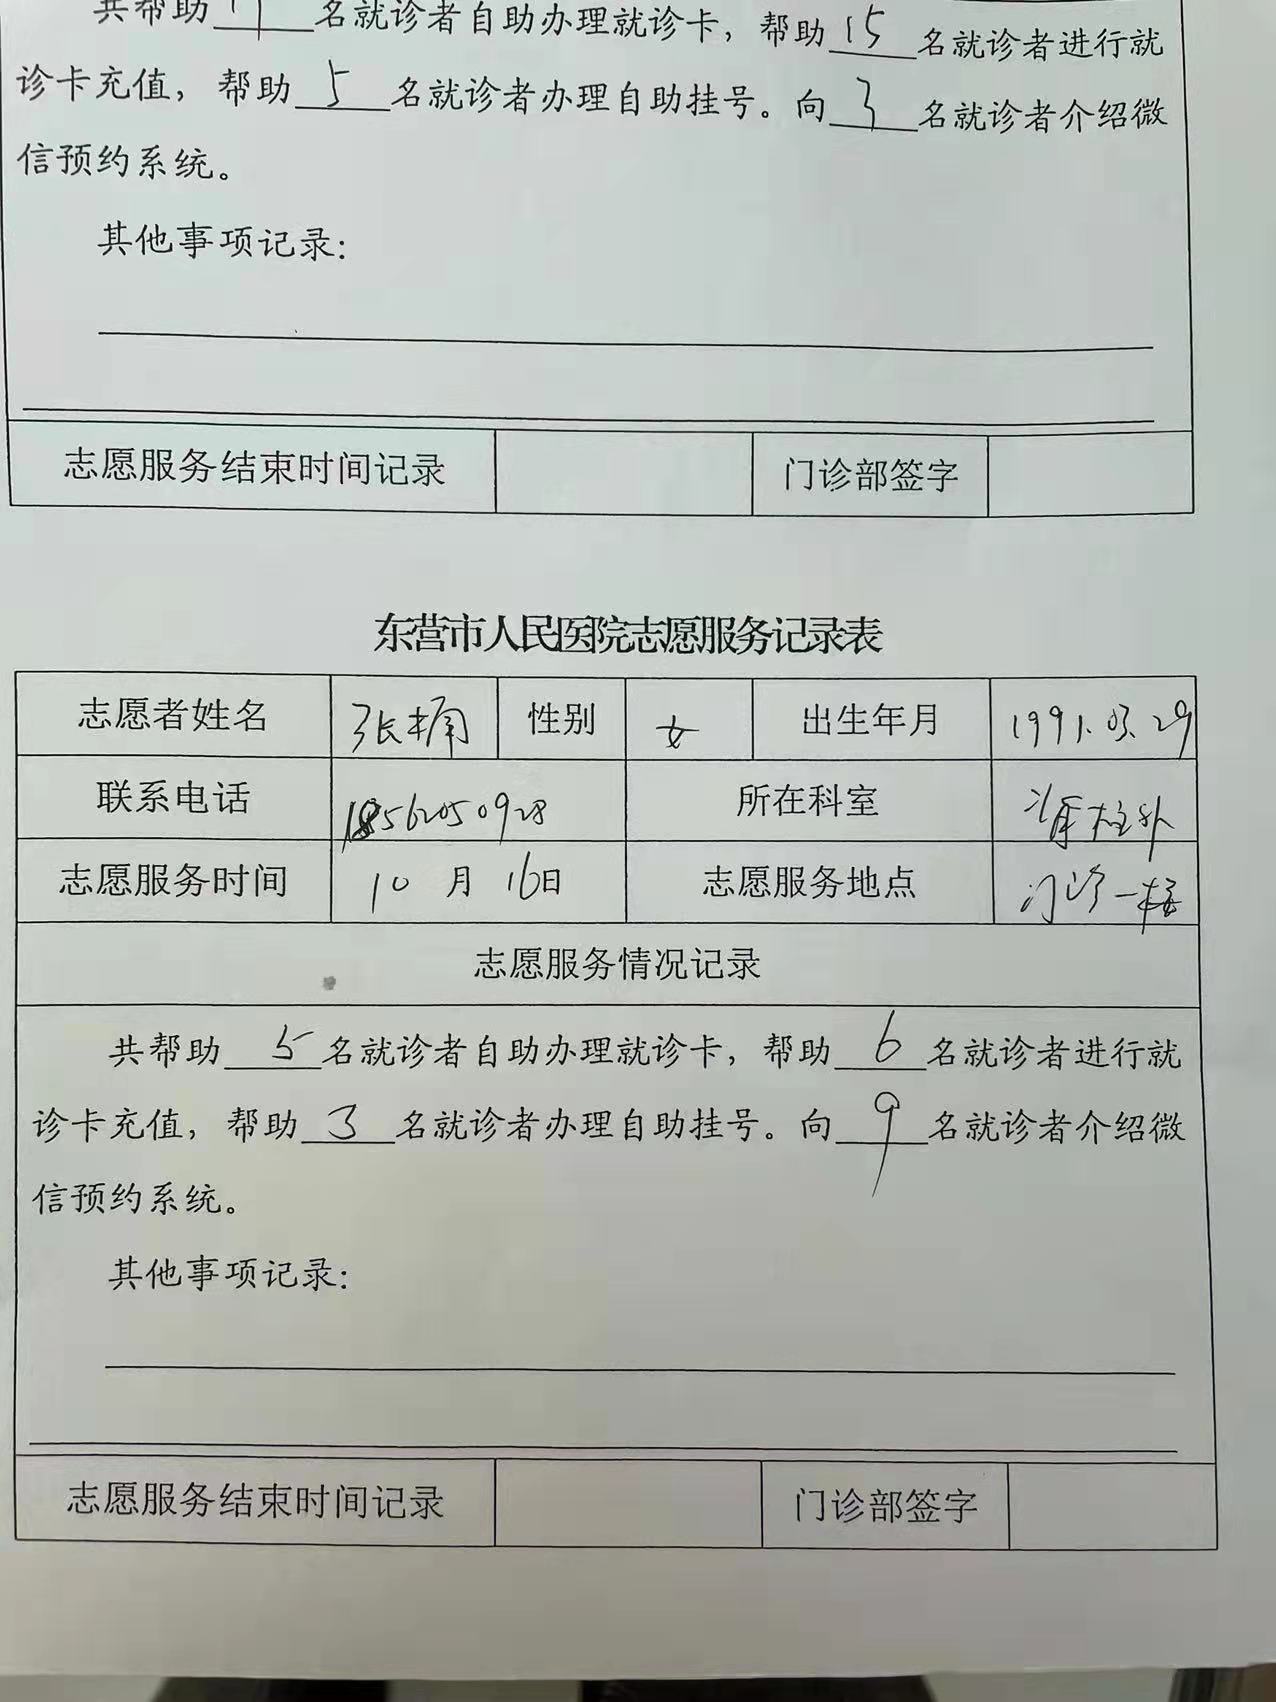 共帮助 名就诊者自助办理就诊卡，帮助 15 名就诊者进行就
诊卡充值，帮助 5 名就诊者办理自助挂号。向 3 名就诊者介绍微
信预约系统。
其他事项记录：
志愿服务结束时间记录 门诊部签字
东营市人民医院志愿服务记录表
志愿者姓名 张楠 性别 女 出生年月 1991.03.29
联系电话 18562050928 所在科室 脊柱外
志愿服务时间 10 月 16日 志愿服务地点 门诊一楼
志愿服务情况记录
共帮助 5 名就诊者自助办理就诊卡，帮助 6 名就诊者进行就
诊卡充值，帮助 3 名就诊者办理自助挂号。向 9 名就诊者介绍微
信预约系统。
其他事项记录：
志愿服务结束时间记录 门诊部签字